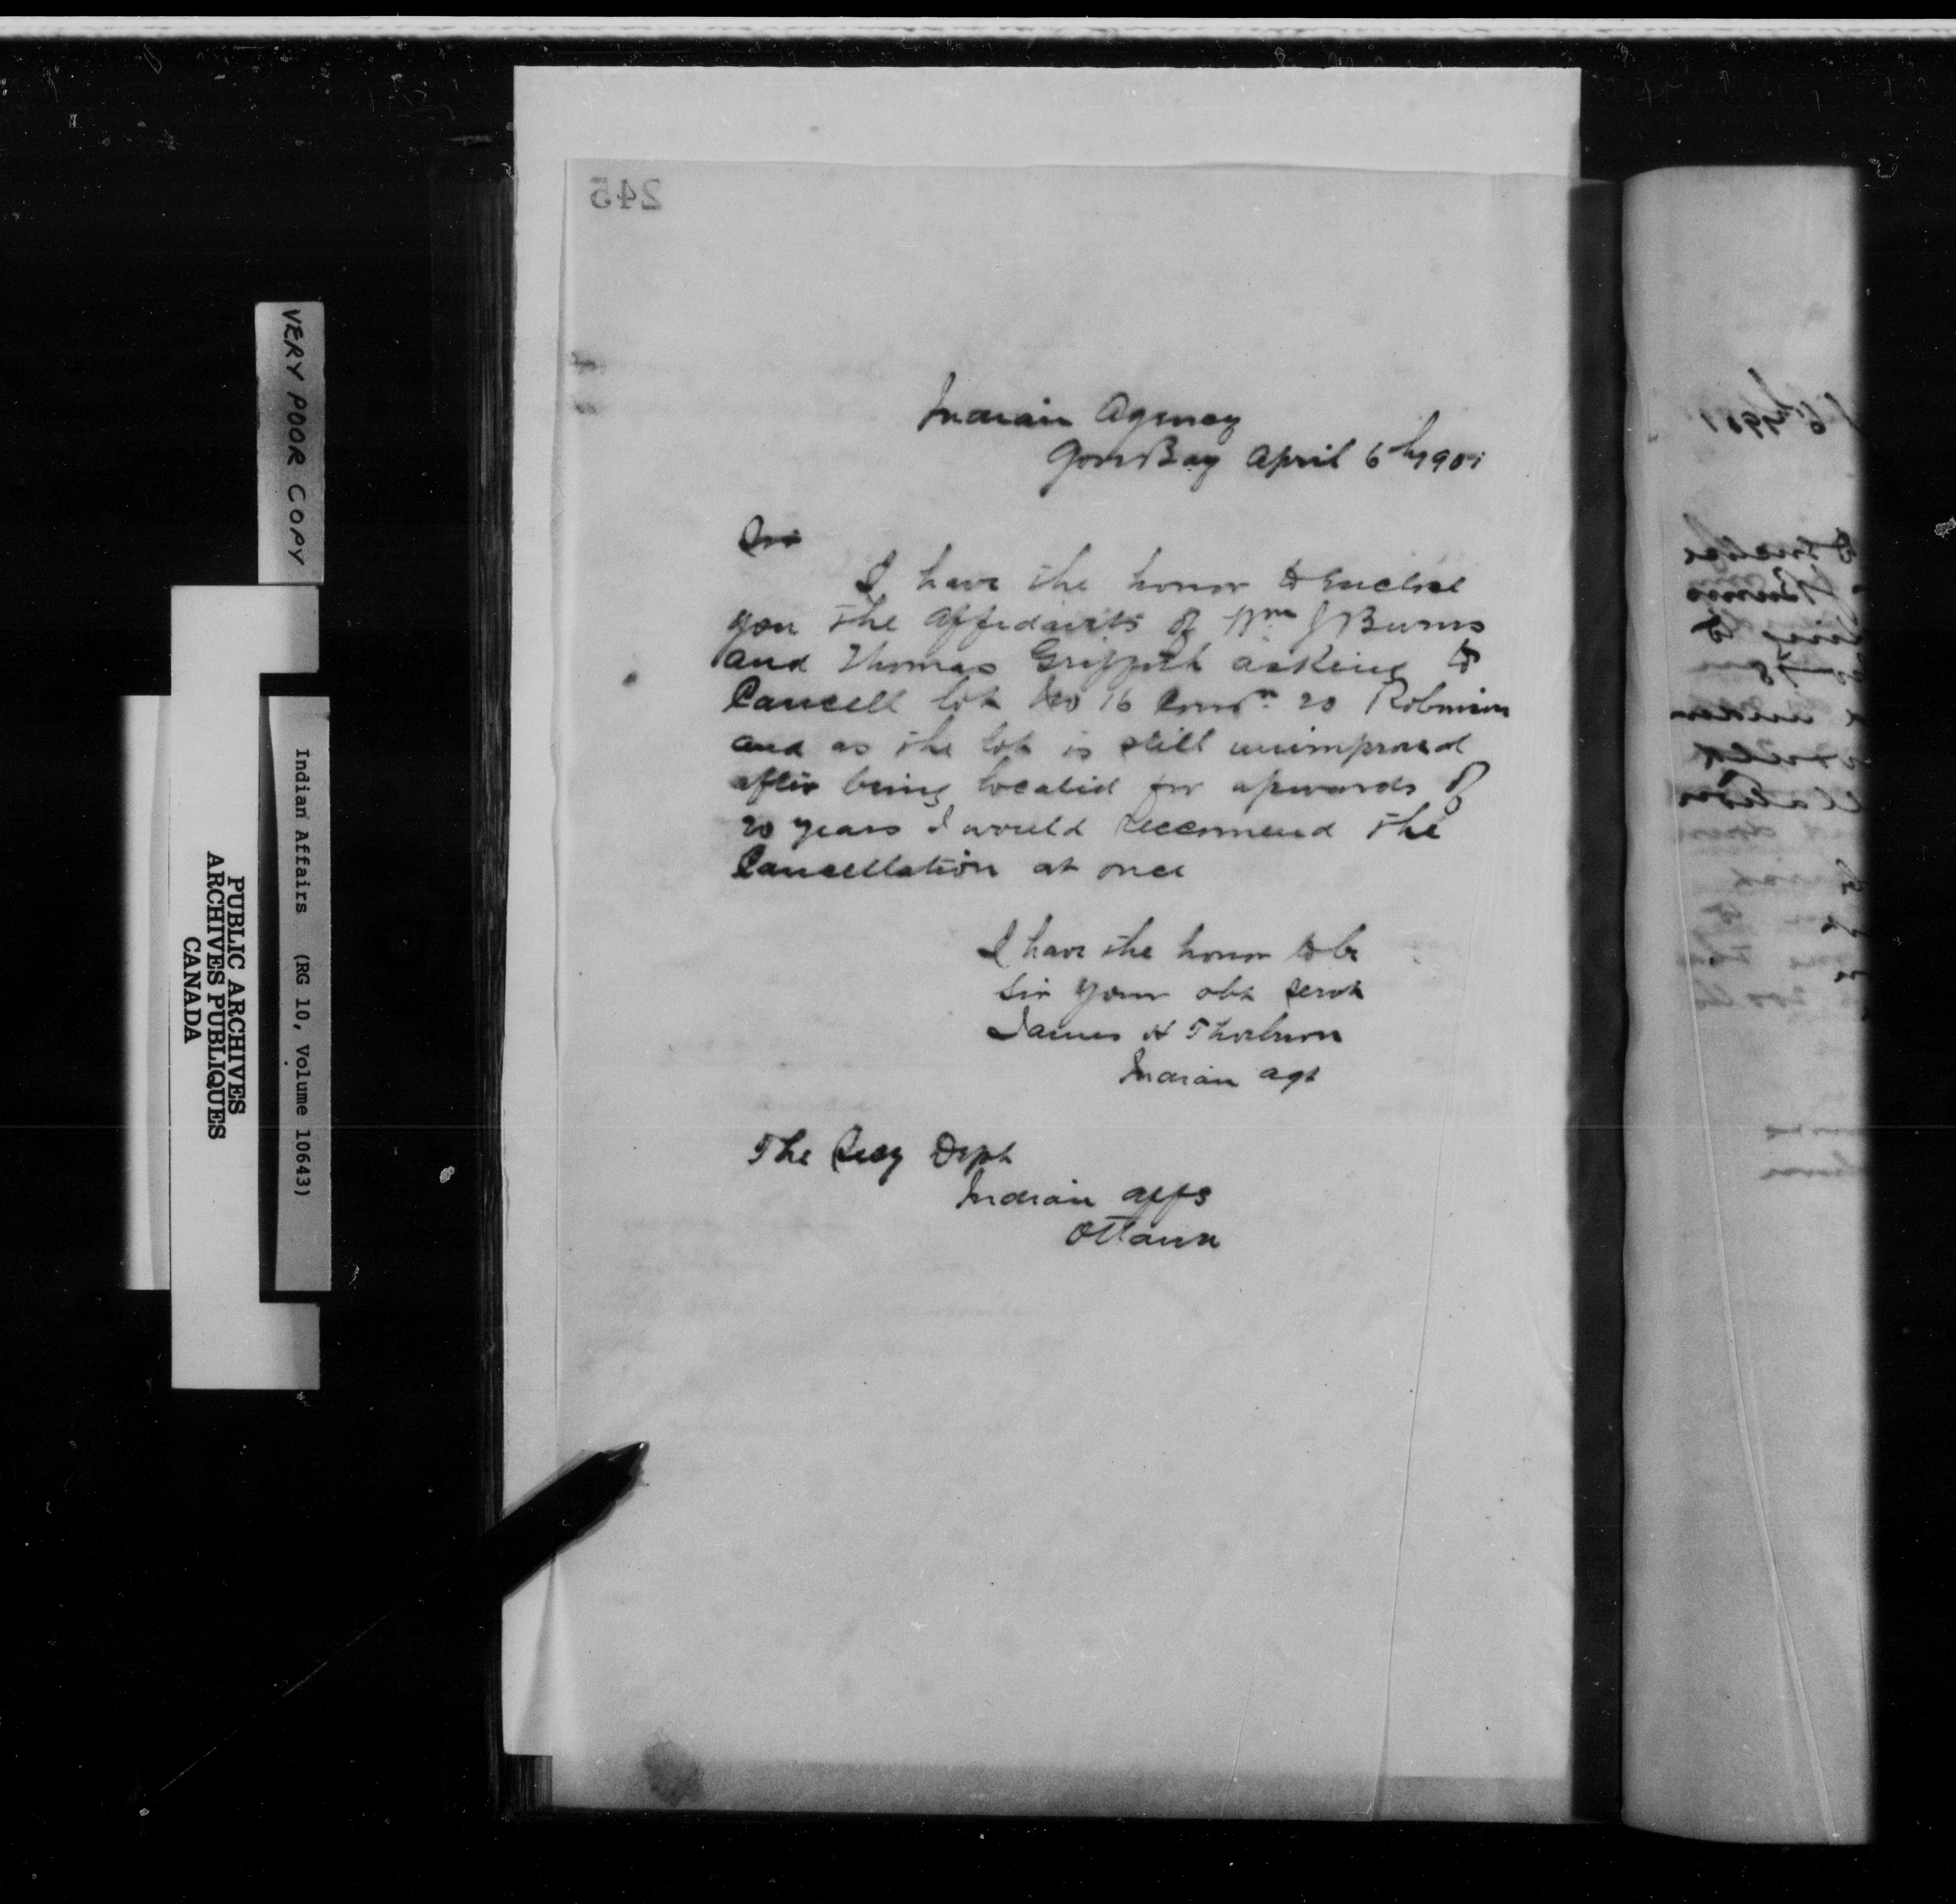 245
Indian Agency
Gore Bay April 6th 1901
Sir
I have the honor to Enclose
you the affidavits of Wm J Burns
and Thomas Griffith asking to
Cancell lot No 16 Conn 20 Robinson
and as the lot is still unimproved
after being located for upwards of
20 years I would reccomend the
Cancellation at once
I have the honor to be
Sir your obt servt
James H Thorburn
Indian agt
The Secy Dept
Indian affs
Ottawa
VERY POOR COPY
Indian Affairs (RG 10, Volume 10643)
PUBLIC ARCHIVES
ARCHIVES PUBLIQUES
CANADA